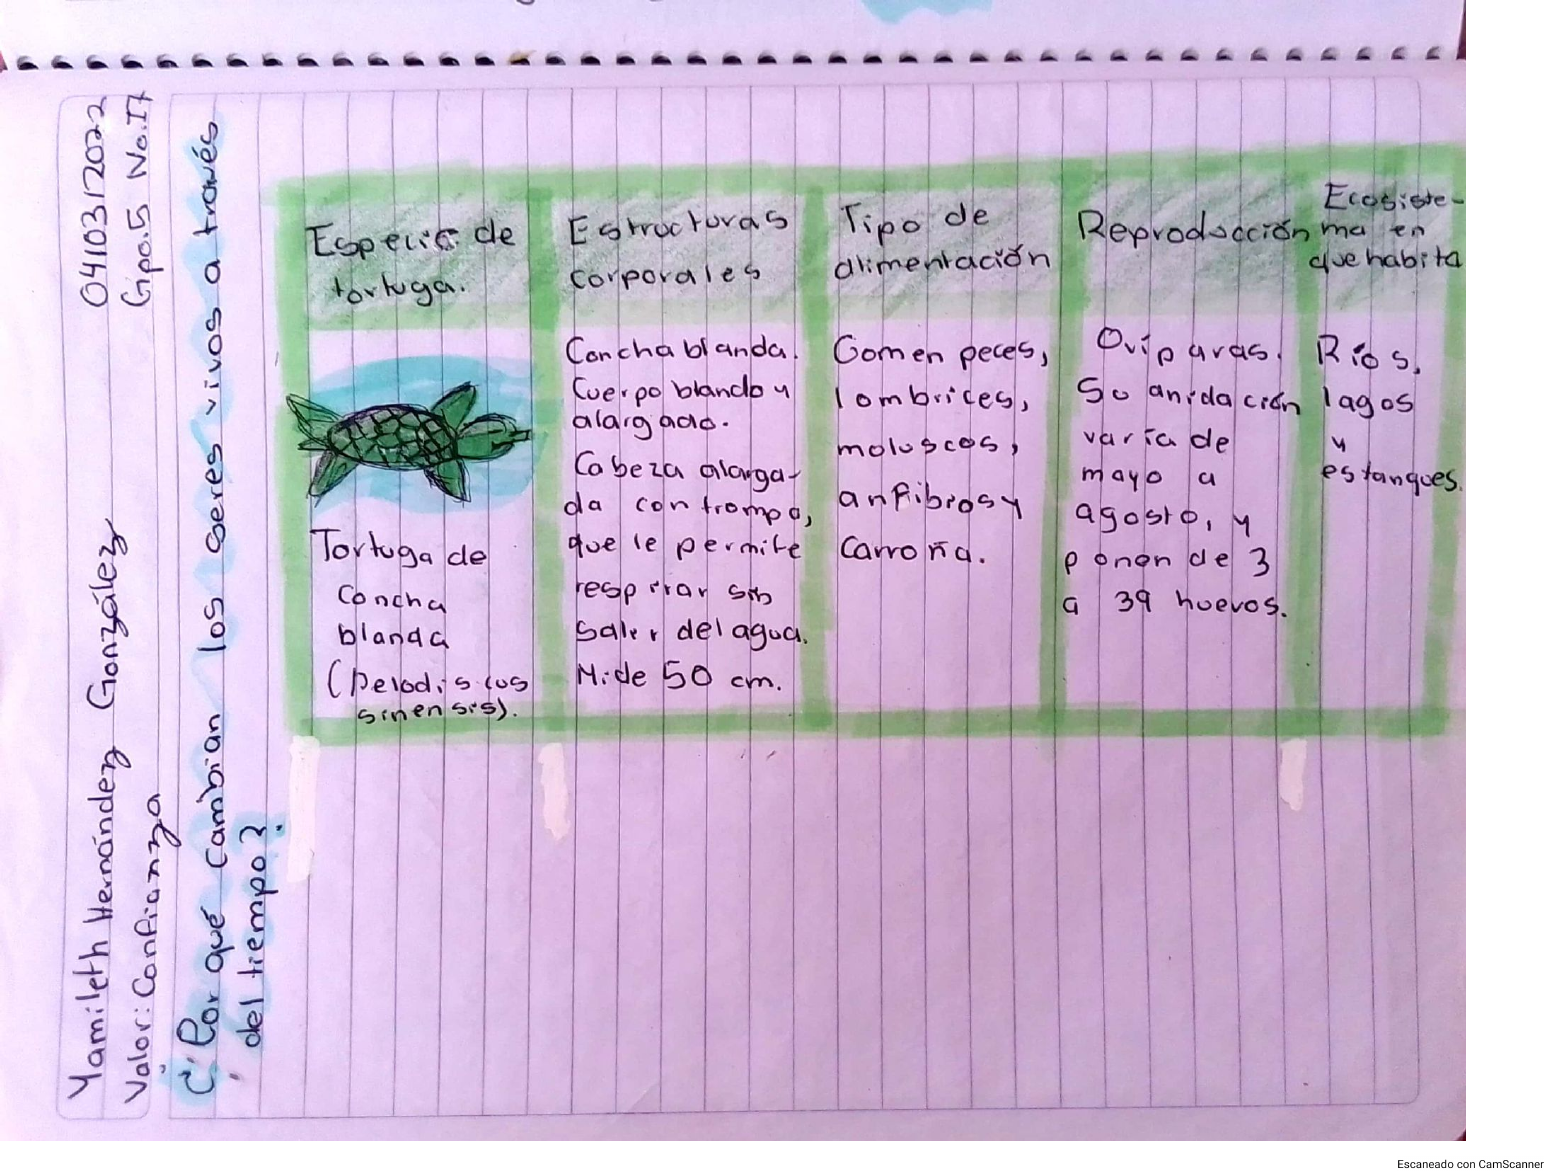 Yamileth Hernández González 04/03/2022
Valor: Confianza Gpo.5 No.17
¿Por qué cambian los seres vivos a través
del tiempo?
Especie de
tortuga.
Estructuras
corporales
Tipo de
alimentación
Reproducción
Ecosiste-
ma en
que habita
Tortuga de
concha
blanda
(Pelodiscus
sinensis).
Concha blanda.
Cuerpo blando y
alargado.
Cabeza alarga-
da con trompa,
que le permite
respirar sin
salir del agua.
Mide 50 cm.
Comen peces,
lombrices,
moluscos,
anfibios y
carroña.
Ovíparas.
Su anidación
varía de
mayo a
agosto, y
ponen de 3
a 39 huevos.
Ríos,
lagos
y
estanques.
Escaneado con CamScanner